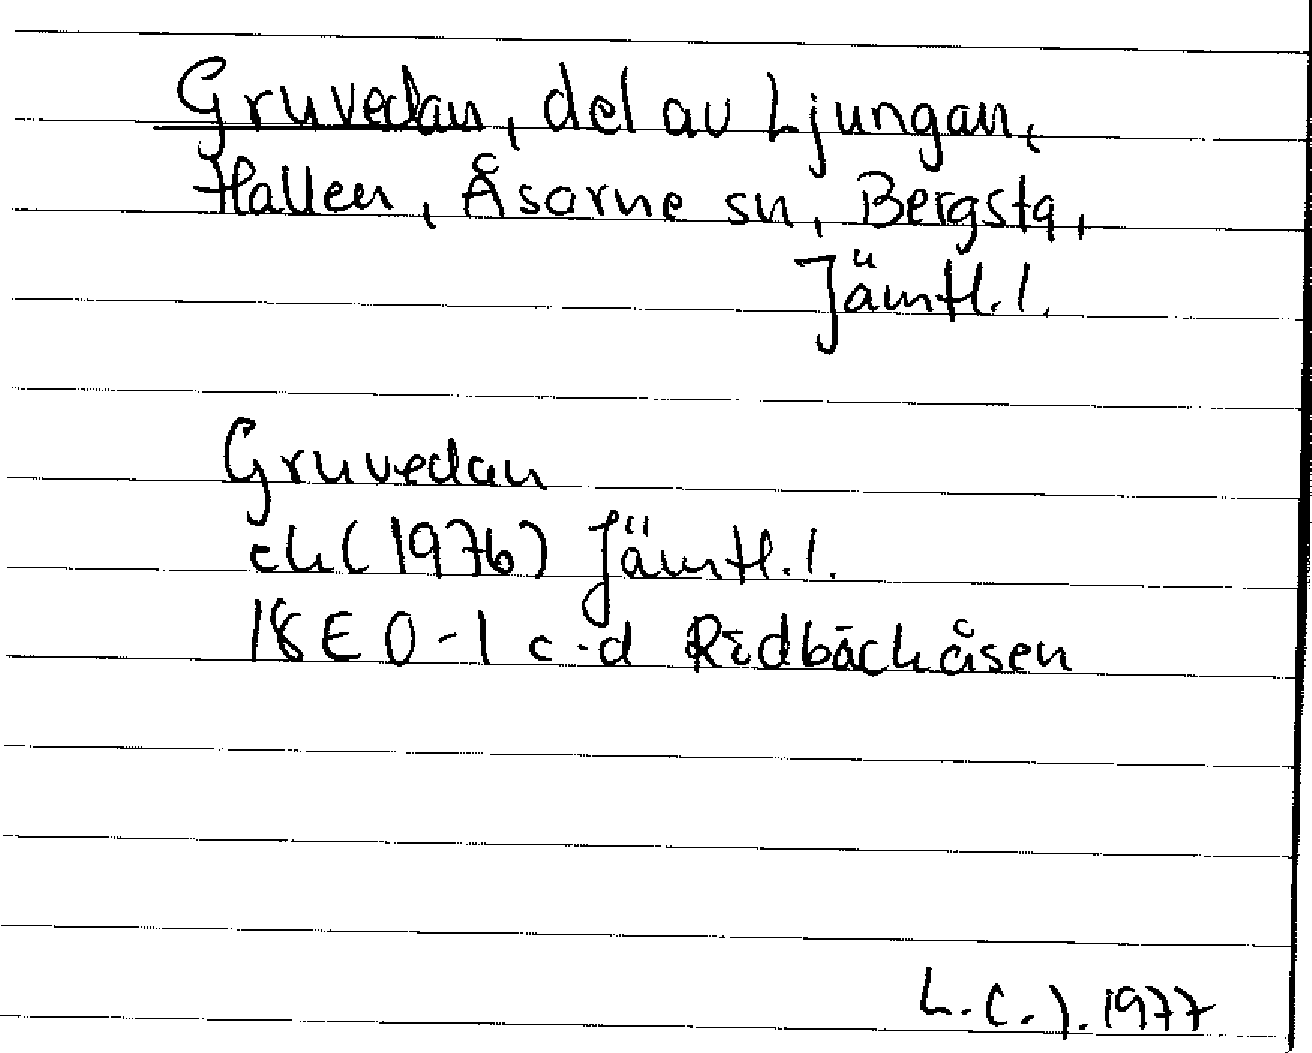 Gruvedan, del av Ljungan,
Hallen, Åsarne sn, Bergsta,
Jämtl. l.
Gruvedan
ek (1976) Jämtl. l.
18E 0-1 c-d Rödbäckåsen
L.C.J. 1977